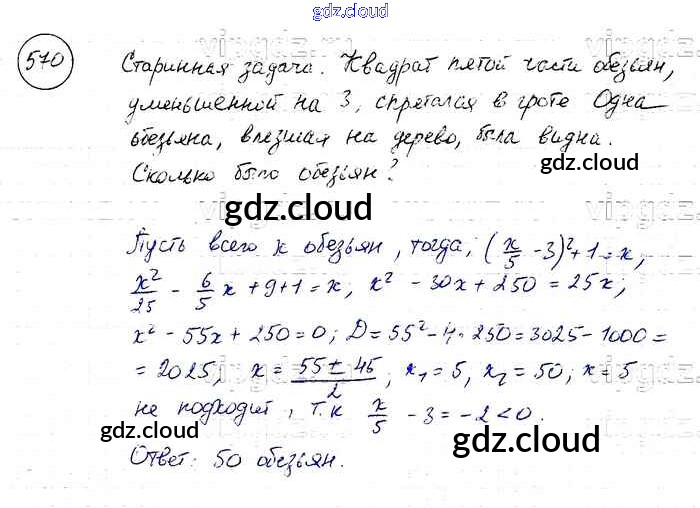 gdz.cloud
570
Старинная задача. Квадрат пятой части обезьян,
уменьшенной на 3, спрятался в гроте Одна
обезьяна, влезшая на дерево, была видна.
gdz.cloud
Сколько было обезьян?
gdz.cloud
Пусть всего x обезьян, тогда, (x/5 - 3)² + 1 = x,
x²/25 - 6/5 x + 9 + 1 = x; x² - 30x + 250 = 25x;
x² - 55x + 250 = 0; D = 55² - 4·250 = 3025 - 1000 =
= 2025; x = (55 ± 45)/2; x₁ = 5, x₂ = 50; x = 5
не подходит, т.к x/5 - 3 = -2 < 0.
gdz.cloud gdz.cloud
Ответ: 50 обезьян.
gdz.cloud